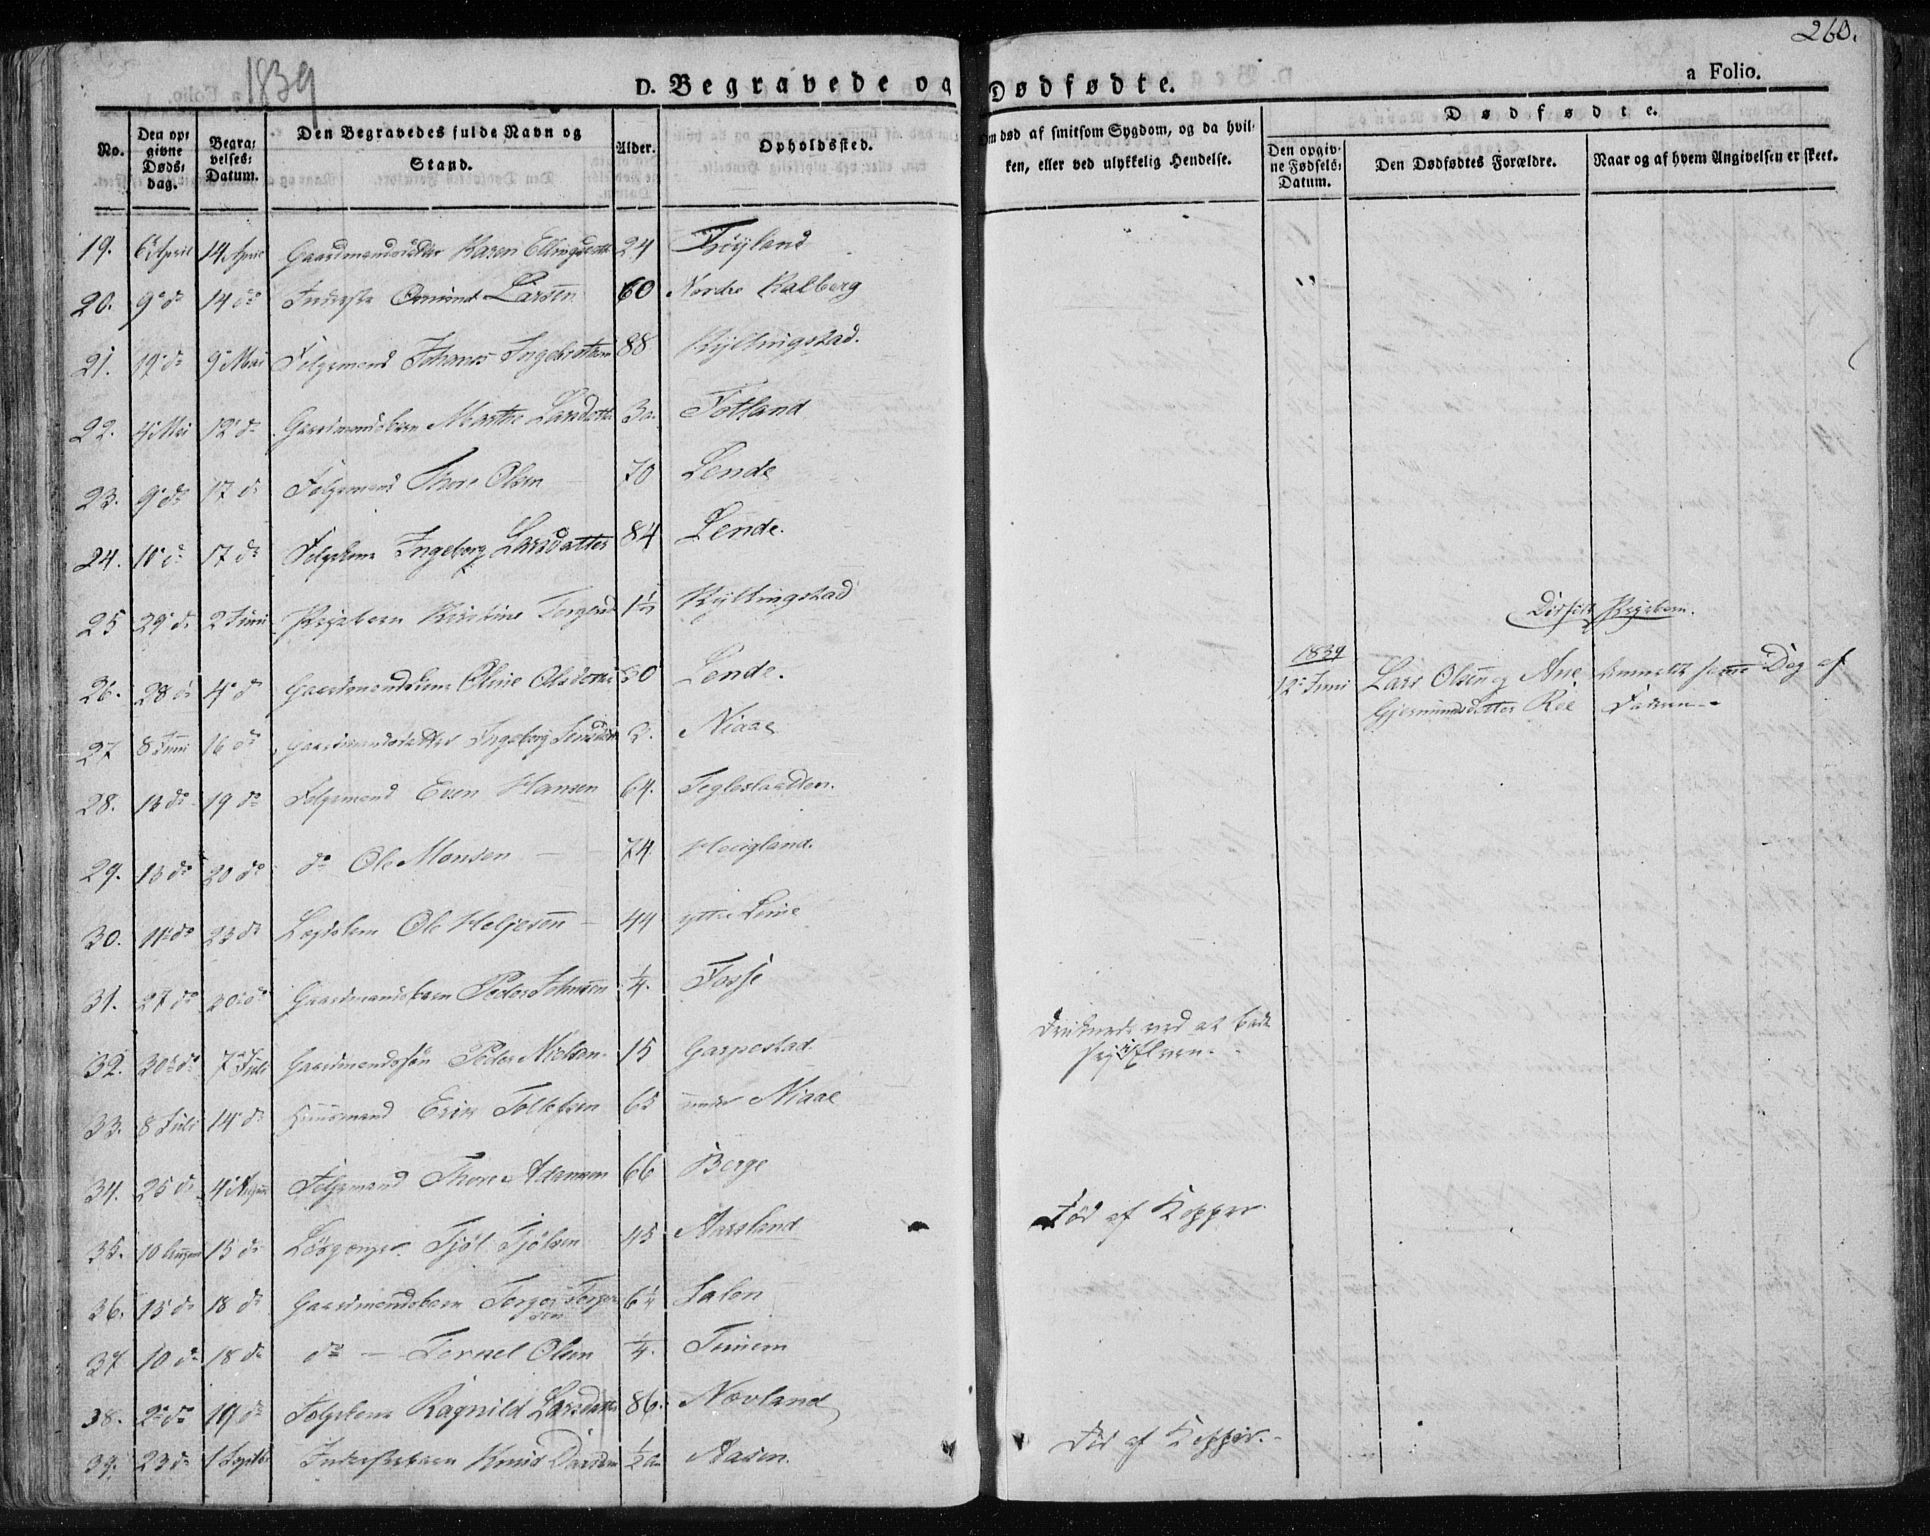 1839
260.
D. Begravede og Dødfødte.
a Folio.
No.
Den opgivne Dødsdag.
Begravelses-Datum.
Den Begravedes fulde Navn og Stand.
Alder.
Opholdssted.
Om død af smitsom Sygdom, og da hvilken, eller ved ulykkelig Hendelse.
Dødfødte.
Den opgivne Fødsels-Datum.
Den Dødfødtes Forældre.
Naar og af hvem Angivelsen er skeet.
19. 6 April 14 April Gaardmandsdatter Karen Ellingsdatter 24 Høyland
20. 9 do 14 do Inderste Omund Larsen 60 Nordre Kalberg
21. 19 do 9 Mai Følgemand Johanes Ingebretsen 88 Kyllingstad.
22. 4 Mai 12 do Gaardmandsbarn Marthe Larsdatter Fotland
23. 9 do 17 do Følgemand Thore Olsen 70 Lende
24. 10 do 17 do Følgekone Ingeborg Larsdatter 84 Lende.
25 29 do 2 Juni Pigebarn Kirstine Kyllingstad
Dødfødt Pigebarn.
26. 28 do 4 do Gaardmandskone Oline Olsdatter 30 Lende.
1839
12 Juni Lars Olsen og Ane Gjermundsdatter Røe Anmeldt samme Dag af Faderen
27 8 Juni 16 do Gaardmandsdatter Ingeborg Niaae
28. 13 do 19 do Følgemand Even Hansen 64. Tegleslaatten.
29. 13 do 20 do do Ole Monsen 74. Houigland.
30. 11 do 23 do Lægdslem Ole Heljesen 44 ytre Lime
31. 27 do 30 do Gaardmandsbarn Peder Johnsen 1/4. Fosse
32. 30 do 7 Juli Gaardmandssøn Peder Nielsen 15 Garpestad.
Druknede ved at bade sig i Elven.
33. 8 Juli 14 do Huusmand Erik Tolleksen 65 under Niaae
34. 25 do 4 August Følgemand Thore Adamsen 66 Berge
35. 10 August 15 do Løsgænger Tjøl Tjølsen 45 Aarsland
Død af Kopper.
36. 15 do 18 do Gaardmandsbarn Torger Torgersen Salen
37 10 do 18 do do Tornel Olsen 1/4. Tunem
38. 2 do 19 do Følgekone Ragnild Larsdatter 86. Nævland
39. 23 do 1 Septbr Inderstebarn Knud 1/2 Aasen.
Død af Kopper.